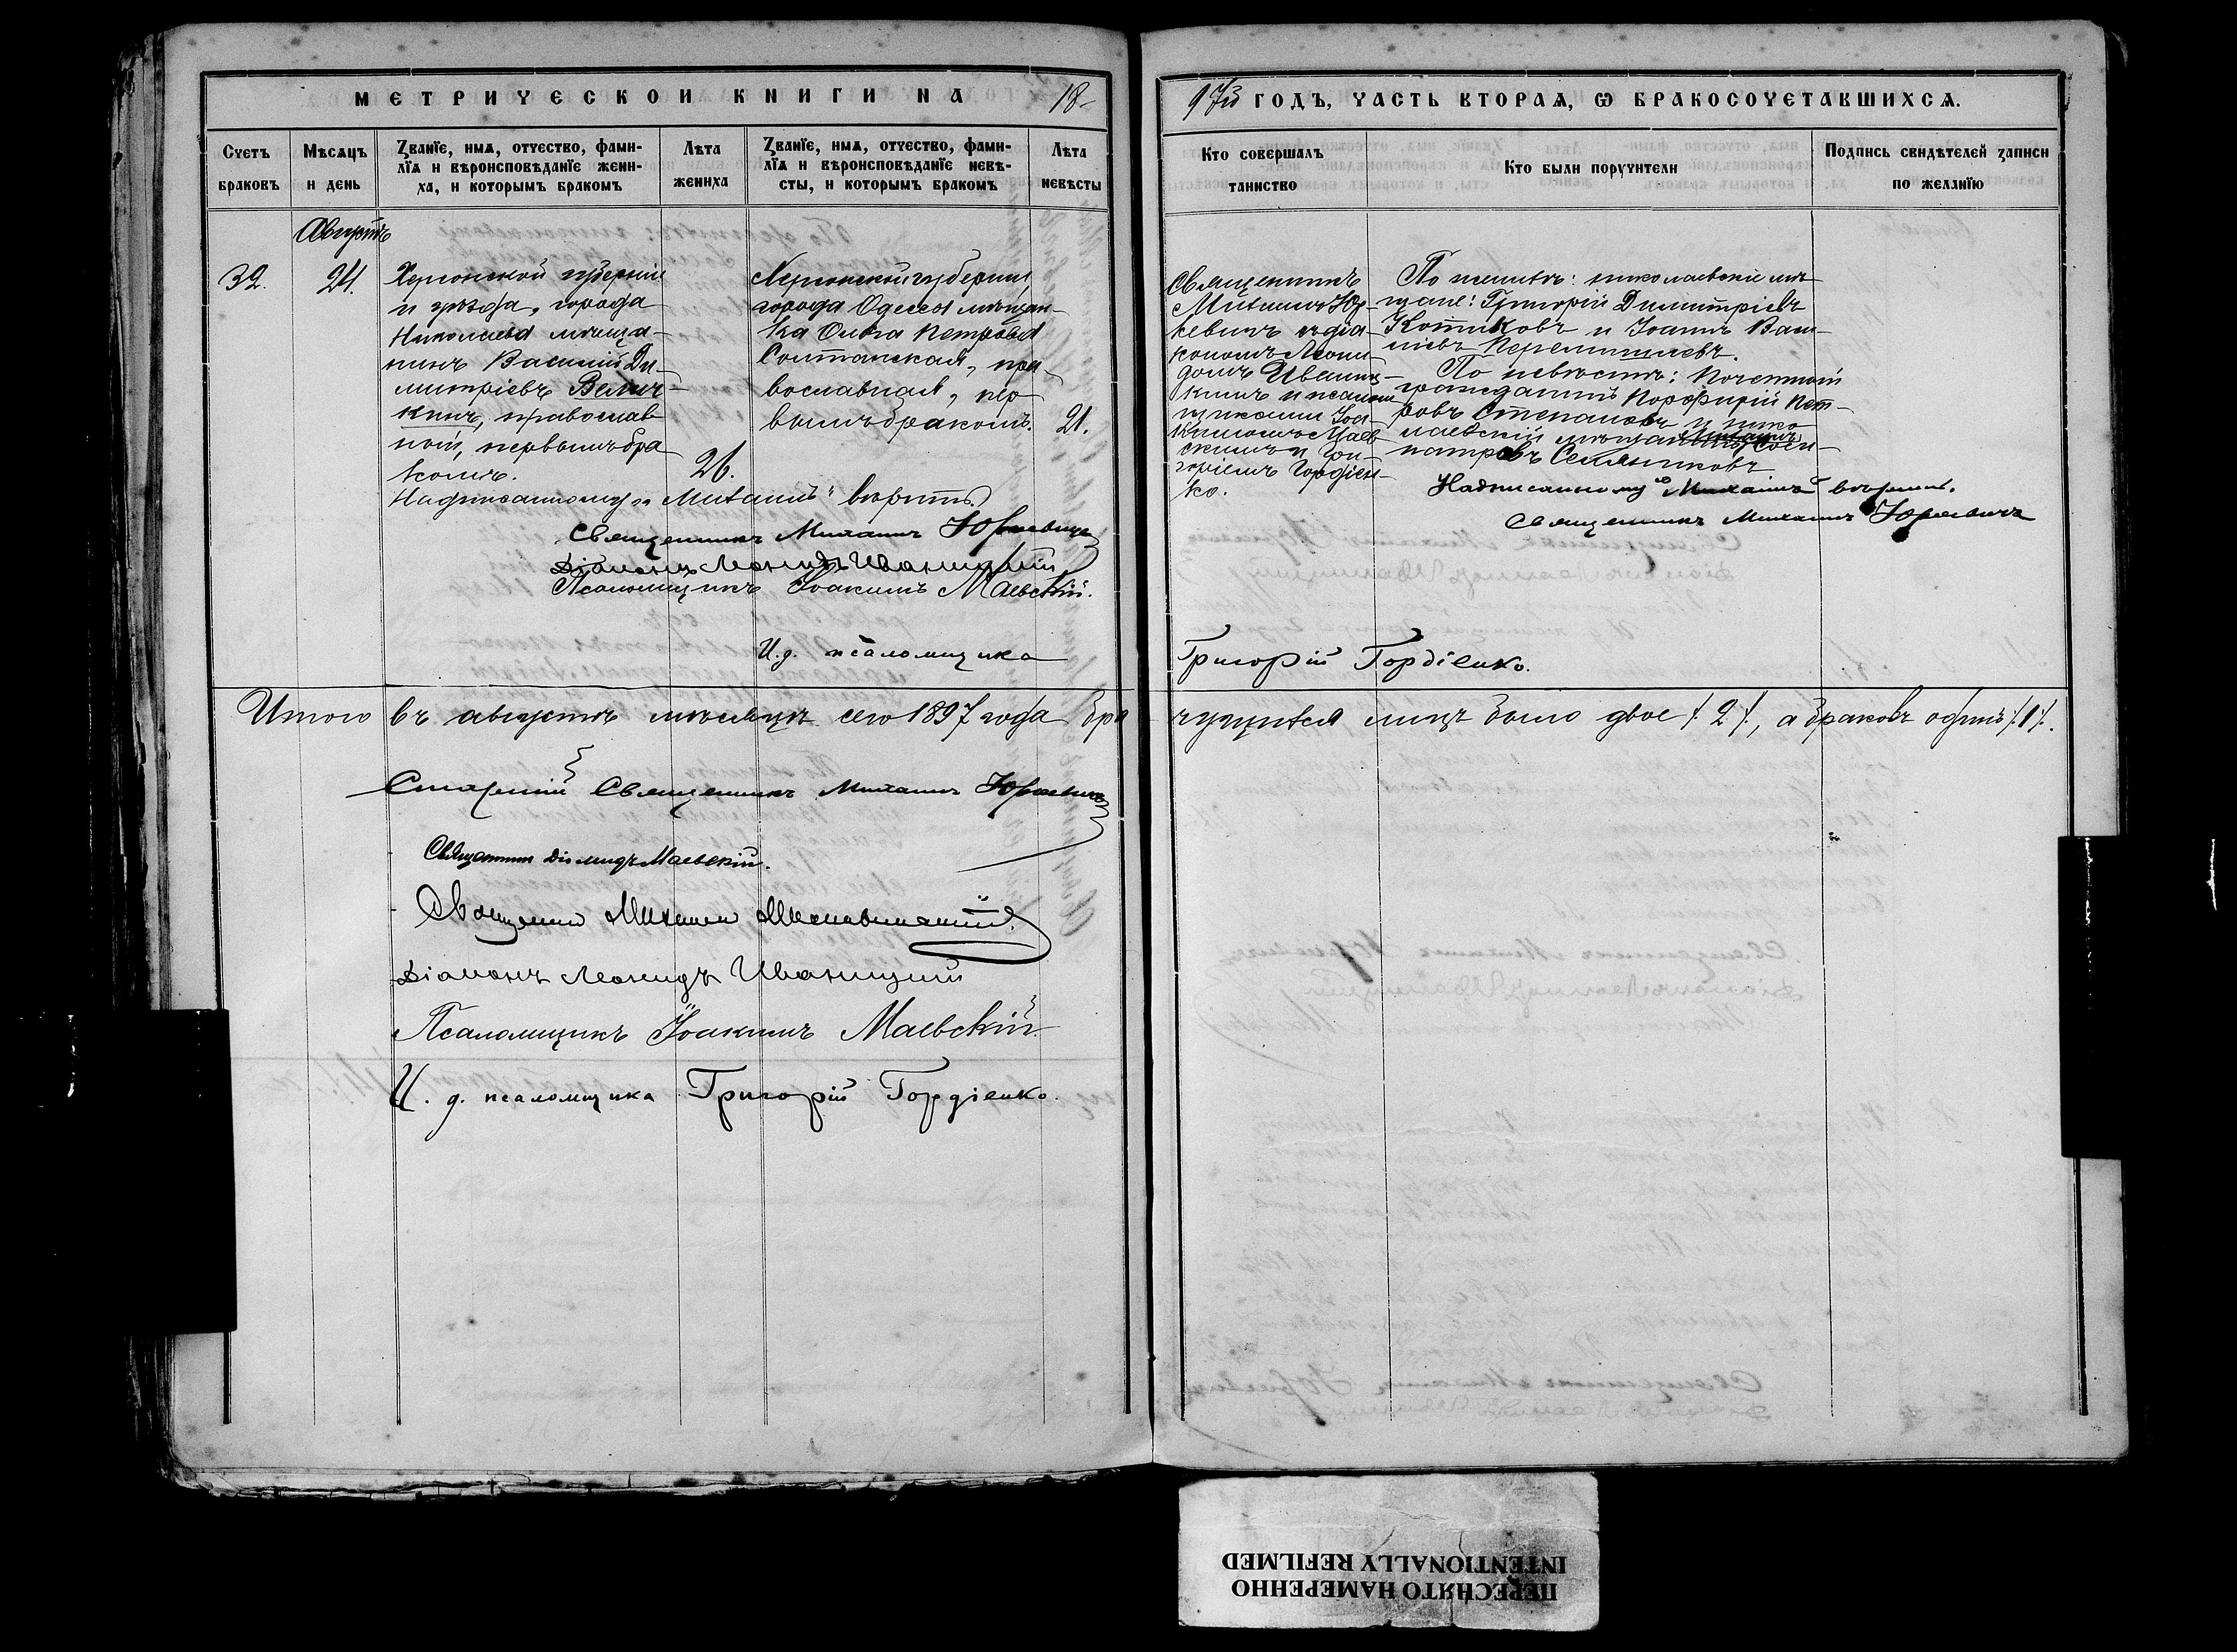 МЕТРИЧЕСКОЙ КНИГИ НА 18
97й ГОДЪ, ЧАСТЬ ВТОРАЯ, Ѡ БРАКОСОЧЕТАВШИХСЯ.
Счетъ браковъ
Мѣсяцъ и день
Званїе, имя, отчество, фами-
лїя и вѣроисповѣданїе жени-
ха, и которымъ бракомъ
Лѣта жениха
Званїе, имя, отчество, фами-
лїя и вѣроисповѣданїе невѣ-
сты, и которымъ бракомъ
Лѣта невѣсты
Кто совершалъ таинство
Кто были поручители
Подпись свидѣтелей записи по желанїю
Августъ
32.
24.
Херсонской губерніи
и уѣзда, города
Николаева мѣща-
нинъ Василій Ди-
митріевъ Велич-
кинъ, православ
ной, первымъ бра
комъ.
26.
Херсонской губерніи,
города Одессы мѣщан-
ка Ольга Петрова
Солтанская, пра-
вославная, пер-
вымъ бракомъ.
21.
Священникъ
Михаилъ Юр-
кевичъ съ діа-
кономъ Леони-
домъ Иваниц-
кимъ и псалом
щиками Іоа-
кимомъ Маев-
скимъ и Гри-
горіемъ Гордіен-
ко.
По женихѣ: николаевскіе мѣ-
щане: Григорій Димитріевъ
Котиковъ и Іоаннъ Васи-
ліевъ
По невѣстѣ: Почетный
гражданинъ Порфирій Пет-
ровъ Степановъ и нико
лаевскій мѣщанинъ Соси-
патровъ
Надписанному „Михаилъ“ вѣрить.
Священникъ Михаилъ Юркевичъ
Діаконъ Леонидъ Иваницкій
Псаломщикъ Іоакимъ Маевскій.
И. д. псаломщика
Надписанному „Михаилъ“ вѣрить.
Священникъ Михаилъ Юркевичъ
Григорій Гордіенко.
Итого въ августѣ мѣсяцѣ сего 1897 года бра
чущихся лицъ было двое /. 2 /., а браковъ одинъ /. 1 /.
Старшій Священникъ Михаилъ Юркевичъ
Священникъ Діомидъ Маевскій.
Священникъ Михаилъ
Діаконъ Леонидъ Иваницкій
Псаломщикъ Іоакимъ Маевскій
И. д. псаломщика Григорій Гордіенко.
ПЕРЕСНЯТО НАМЕРЕННО
INTENTIONALLY REFILMED